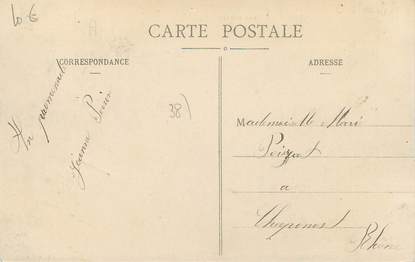 10 €
CARTE POSTALE
CORRESPONDANCE
ADRESSE
38)
En promenade
Jeanne
Mademoiselle Marie
Poizat
à
Chaponost
Rhône